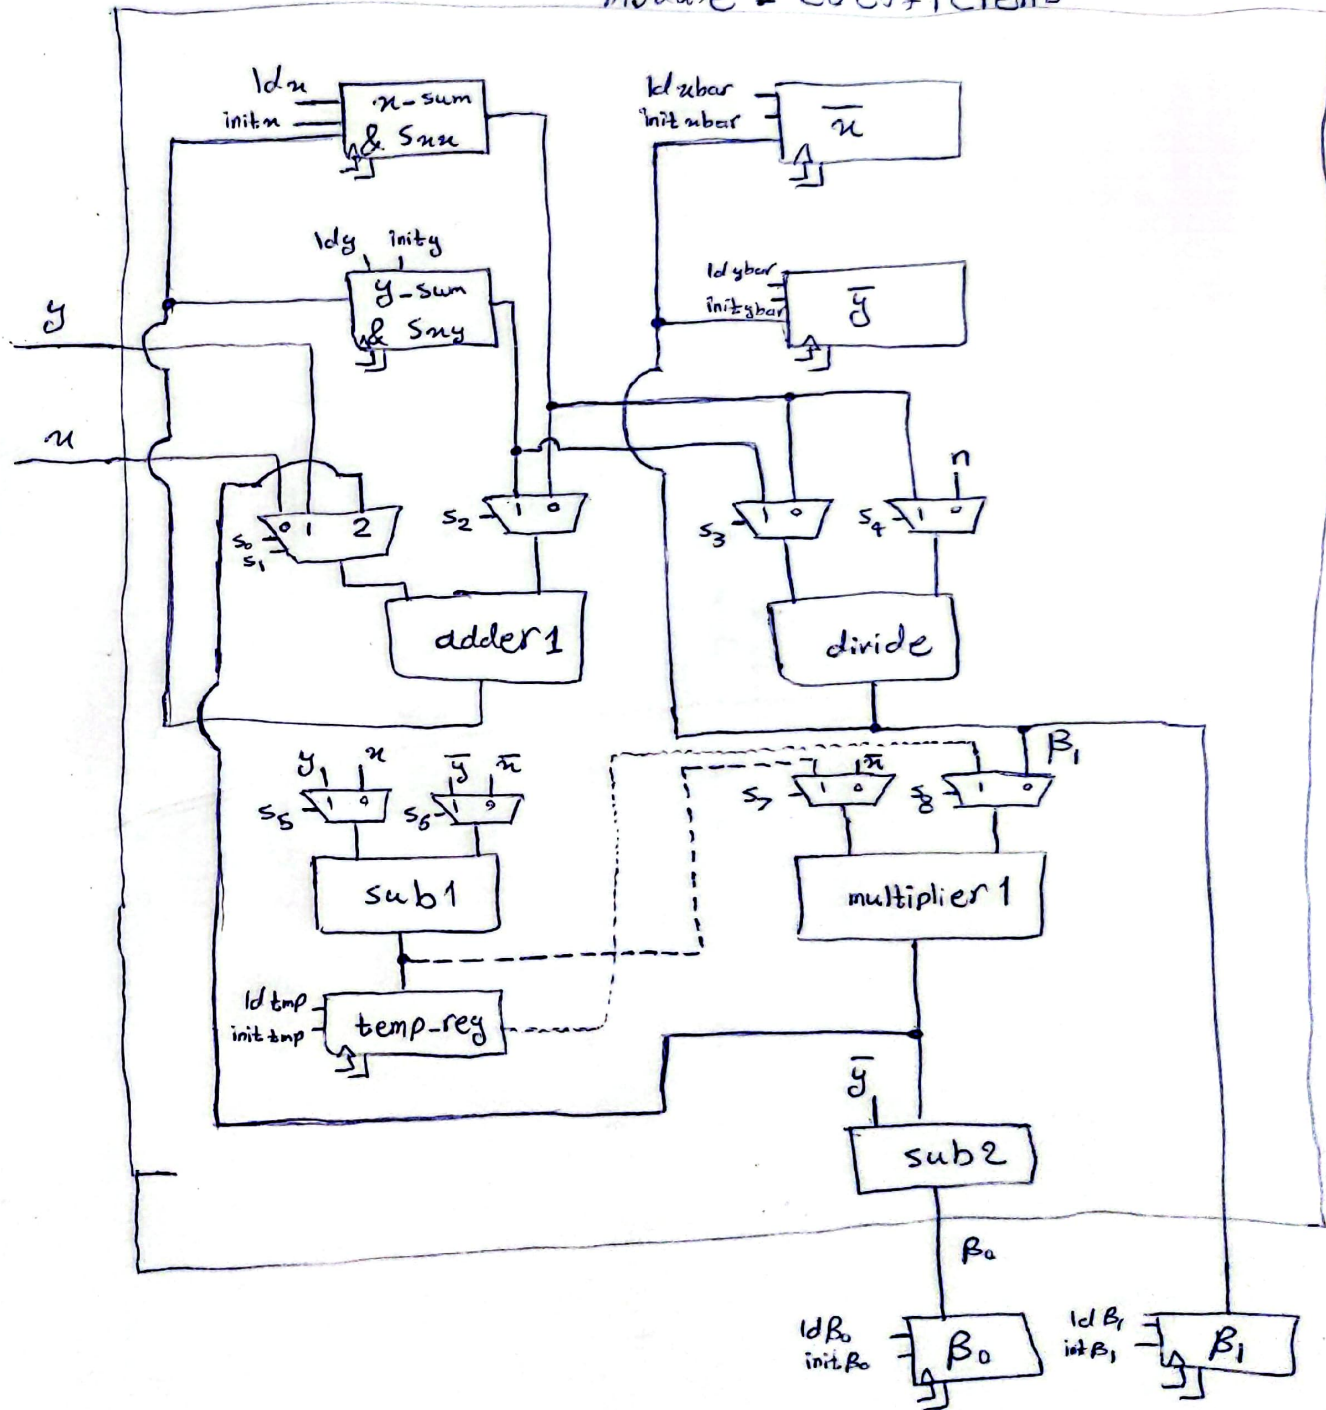 ldx
initx
x-sum
& Sxx
ldxbar
initxbar
x̄
ldy inity
y-sum
& Sxy
ldybar
initybar
ȳ
y
x
n
s0
s1
0 1 2
s2
1 0
s3
1 0
s4
1 0
adder1
divide
β1
y x
s5
1 0
ȳ x̄
s6
1 0
s7
1 0
x̄
s8
1 0
sub1
multiplier 1
ldtmp
inittmp
temp-reg
ȳ
sub2
β0
ldβ0
initβ0
β0
ldβ1
intβ1
β1